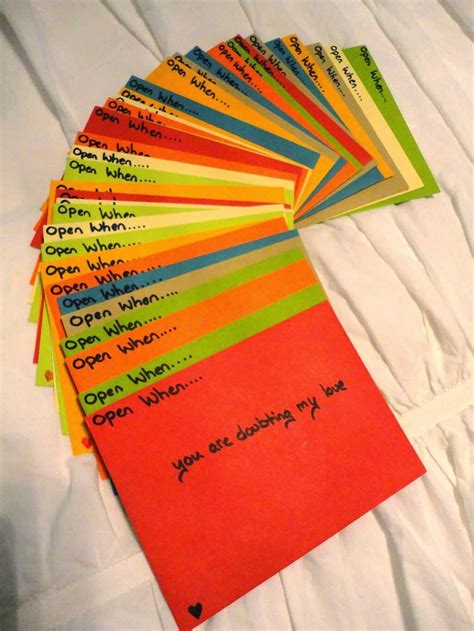 Open When...
Open When....
Open When....
Open When....
Open When....
Open When....
Open When....
Open When....
Open When....
Open When....
Open When....
Open When....
Open When....
Open When....
Open When....
Open When....
Open When....
Open When....
Open When....
Open When....
Open When....
Open When....
Open When....
Open When....
Open When....
you are doubting my love